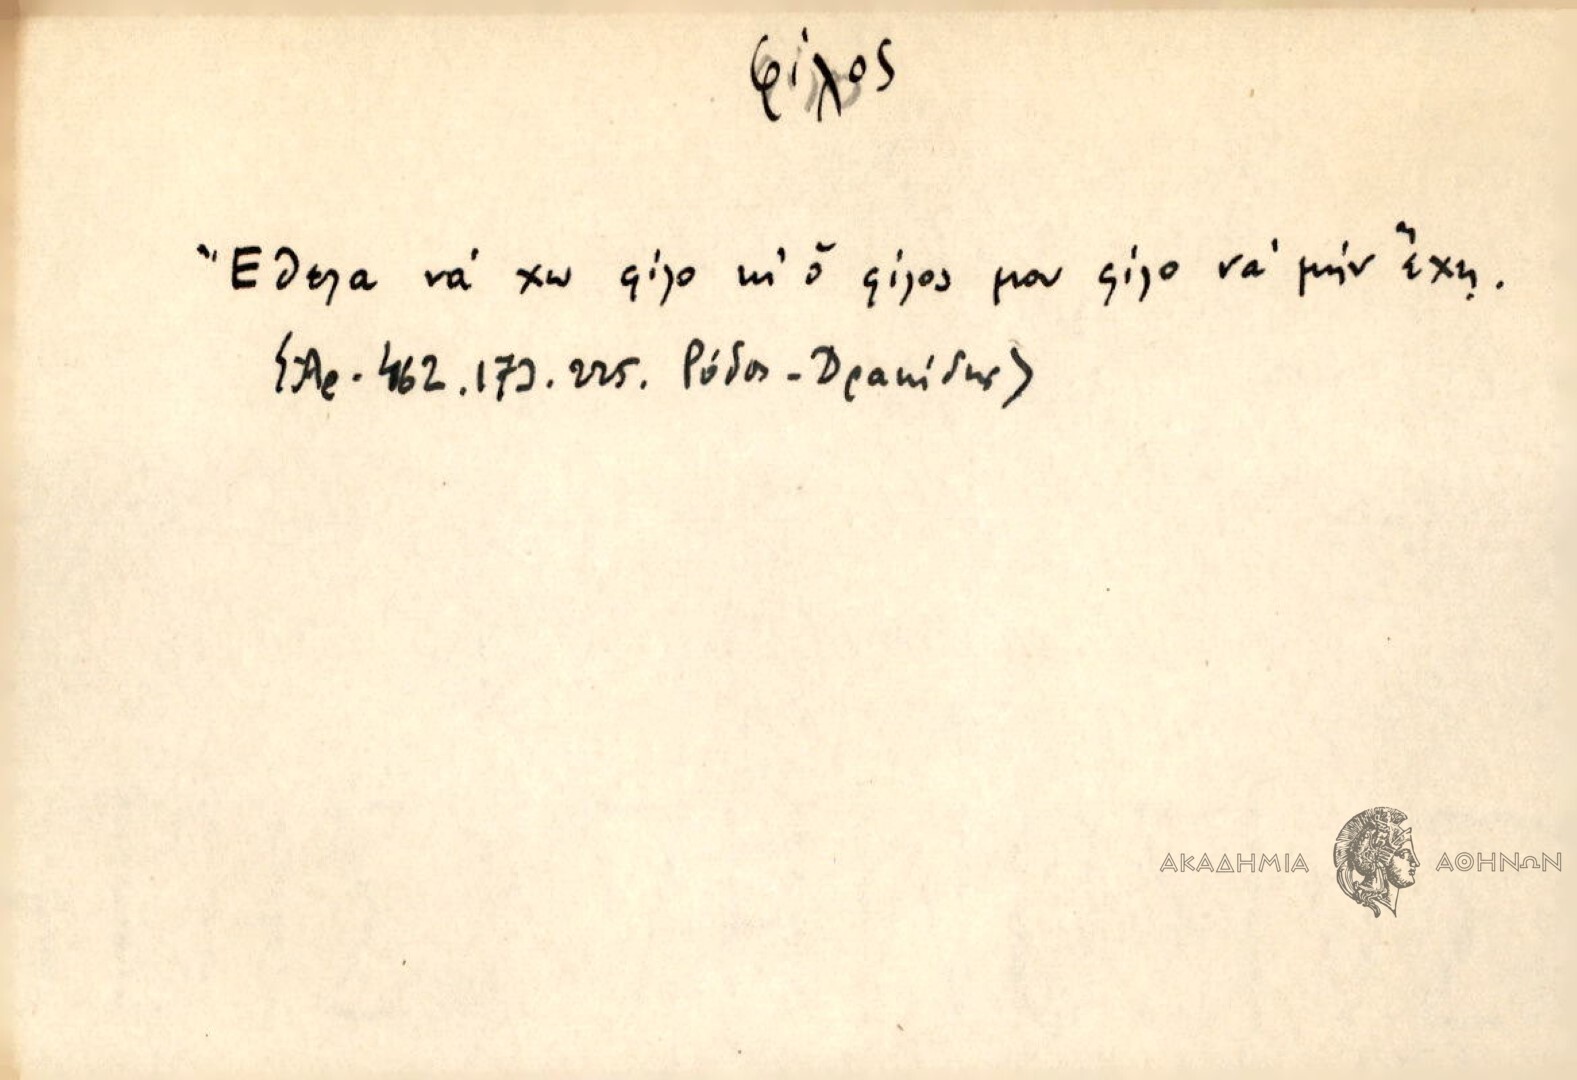 φίλος
Ἤθελα νά χω φίλο κι' ὁ φίλος μου φίλο νά μήν ἔχῃ.
Ἀρ. 462. 225. Ρόδος - Δρακίδης
ΑΚΑΔΗΜΙΑ ΑΘΗΝΩΝ